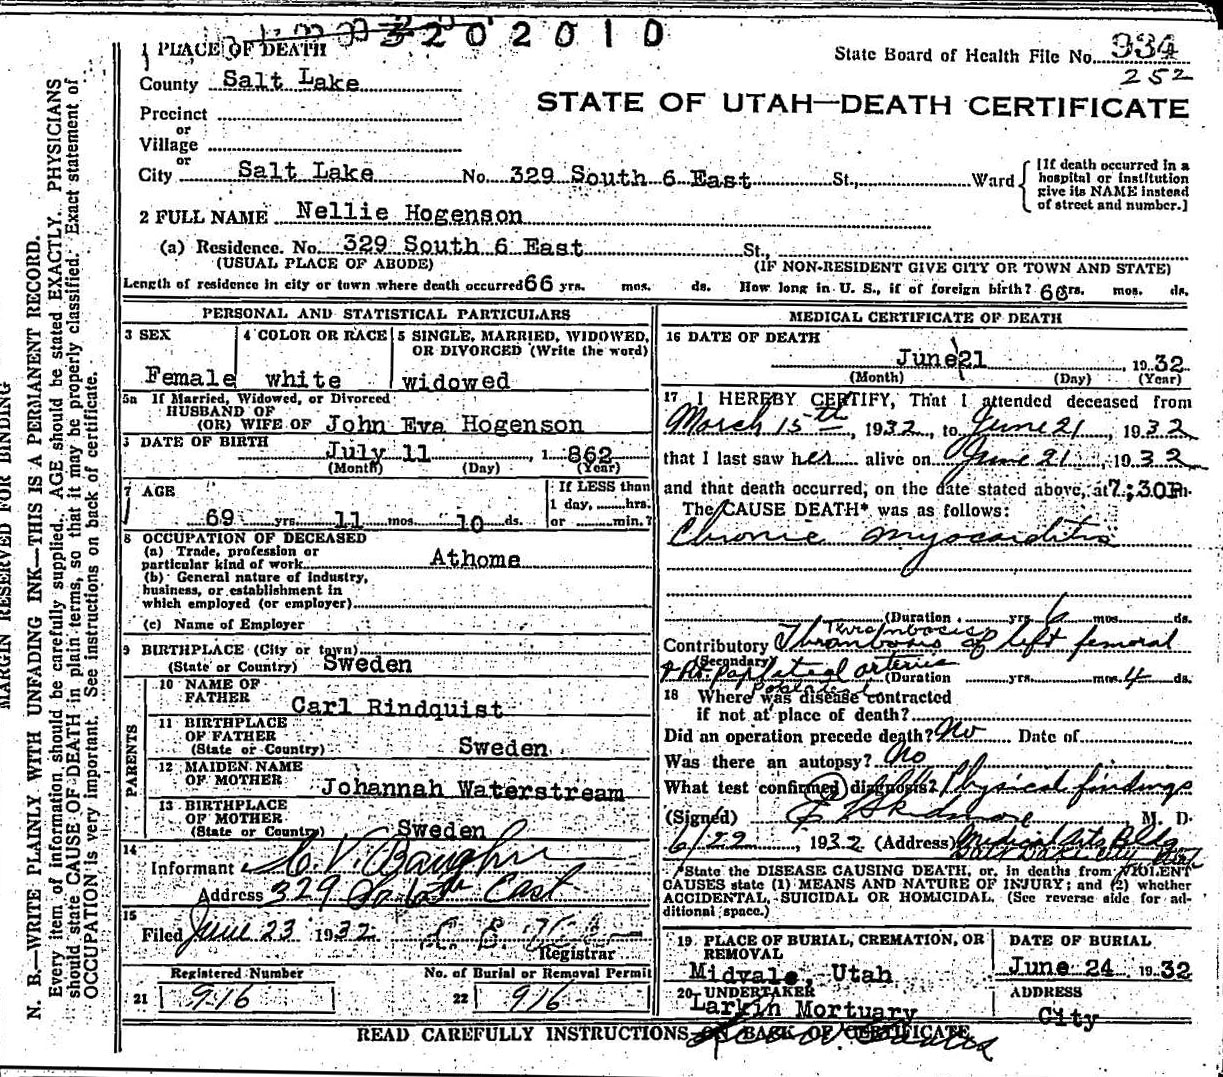 3202010
1 PLACE OF DEATH
State Board of Health File No. 934
252
County Salt Lake
STATE OF UTAH—DEATH CERTIFICATE
Precinct
or
Village
or
City Salt Lake No. 329 South 6 East St., Ward
[If death occurred in a hospital or institution give its NAME instead of street and number.]
2 FULL NAME Nellie Hogenson
(a) Residence. No. 329 South 6 East St.,
(USUAL PLACE OF ABODE) (IF NON-RESIDENT GIVE CITY OR TOWN AND STATE)
Length of residence in city or town where death occurred 66 yrs. mos. ds. How long in U. S., if of foreign birth? 66 yrs. mos. ds.
PERSONAL AND STATISTICAL PARTICULARS
3 SEX 4 COLOR OR RACE 5 SINGLE, MARRIED, WIDOWED, OR DIVORCED (Write the word)
Female white widowed
5a If Married, Widowed, or Divorced
HUSBAND OF
(OR) WIFE OF John Eva Hogenson
DATE OF BIRTH
July 11, 1862
(Month) (Day) (Year)
7 AGE If LESS than
1 day, hrs.
69 yrs. 11 mos. 10 ds. or min.?
8 OCCUPATION OF DECEASED
(a) Trade, profession or
particular kind of work Athome
(b) General nature of industry,
business, or establishment in
which employed (or employer)
(c) Name of Employer
9 BIRTHPLACE (City or town)
(State or Country) Sweden
PARENTS
10 NAME OF
FATHER Carl Rindquist
11 BIRTHPLACE
OF FATHER
(State or Country) Sweden
12 MAIDEN NAME
OF MOTHER Johannah Waterstream
13 BIRTHPLACE
OF MOTHER
(State or Country) Sweden
14
Informant
Address 329 So 6th East
15
Filed June 23 1932
Registrar
Registered Number No. of Burial or Removal Permit
21 916 22 916
MEDICAL CERTIFICATE OF DEATH
16 DATE OF DEATH
June 21, 1932
(Month) (Day) (Year)
17 I HEREBY CERTIFY, That I attended deceased from
March 15th, 1932, to June 21, 1932
that I last saw her alive on June 21, 1932
and that death occurred, on the date stated above, at 7:30P m.
The CAUSE DEATH* was as follows:
Chronic myocarditis
(Duration yrs. 6 mos. ds.
Thrombosis
Contributory Thrombosis of left femoral
(Secondary)
& Rt. Popliteal arteries (Duration yrs. mos. 4 ds.
Popliteal
18 Where was disease contracted
if not at place of death?
Did an operation precede death? No Date of
Was there an autopsy? No
What test confirmed diagnosis? Physical findings
(Signed) Skidmore M. D.
6/22, 1932 (Address) Medical Arts Bldg
Salt Lake City Utah
*State the DISEASE CAUSING DEATH, or, in deaths from VIOLENT
CAUSES state (1) MEANS AND NATURE OF INJURY; and (2) whether
ACCIDENTAL, SUICIDAL OR HOMICIDAL. (See reverse side for ad-
ditional space.)
19 PLACE OF BURIAL, CREMATION, OR REMOVAL DATE OF BURIAL
Midvale, Utah June 24 1932
20 UNDERTAKER ADDRESS
Larkin Mortuary City
READ CAREFULLY INSTRUCTIONS ON BACK OF CERTIFICATE
MARGIN RESERVED FOR BINDING
N. B.—WRITE PLAINLY WITH UNFADING INK—THIS IS A PERMANENT RECORD.
Every item of information should be carefully supplied. AGE should be stated EXACTLY. PHYSICIANS
should state CAUSE OF DEATH in plain terms, so that it may be properly classified. Exact statement of
OCCUPATION is very important. See instructions on back of certificate.